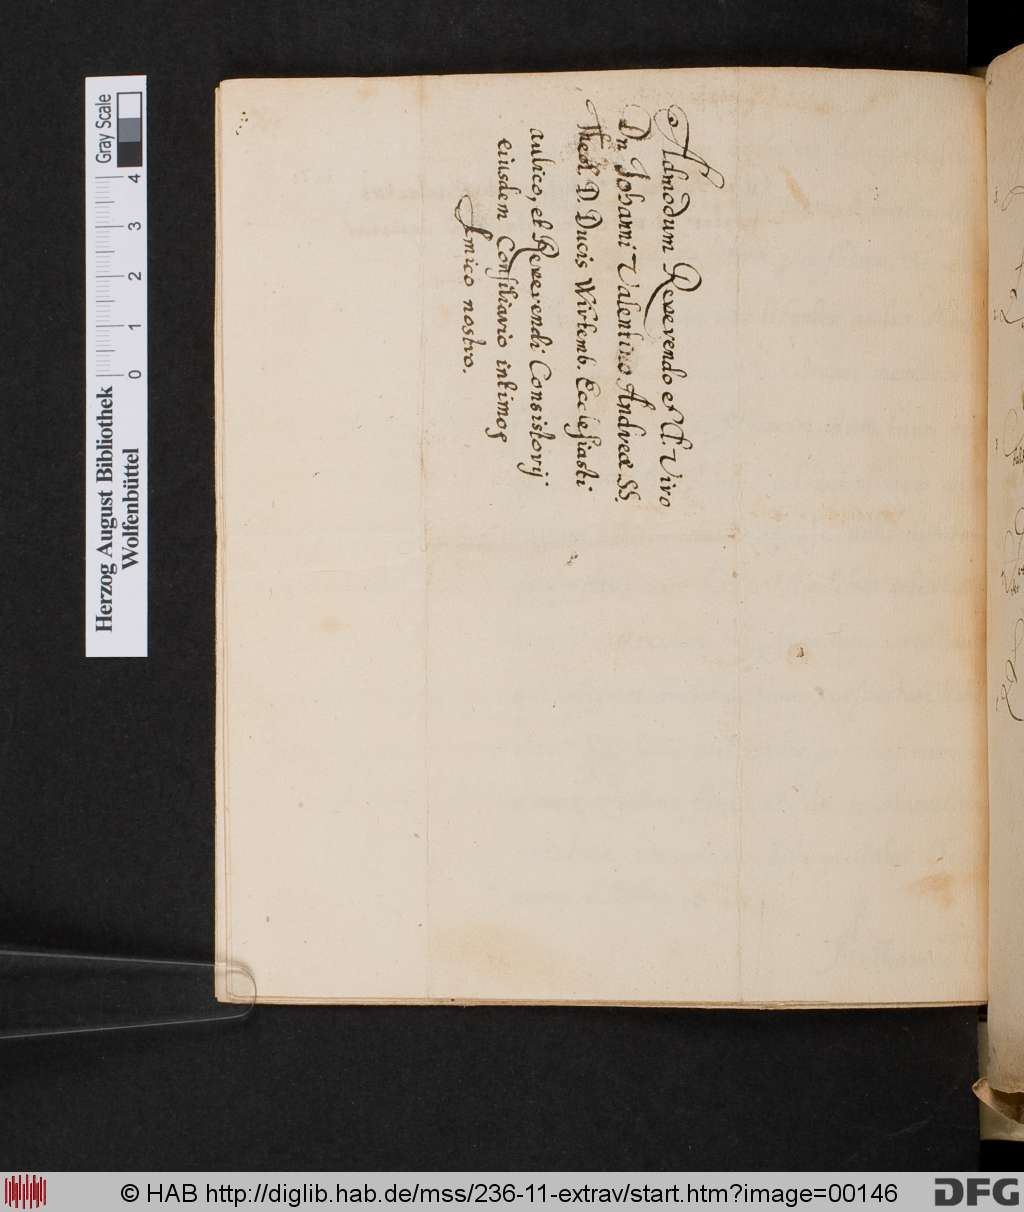 Admodum Reverendo et Cl. Viro
Dn Johanni Valentino Andreæ SS.
Theol. D. Ducis Wirtemb. Ecclesiasti
aulico, et Reverendi Consistorij
eiusdem Consiliario intimo,
Amico nostro.
Herzog August Bibliothek
Wolfenbüttel
Gray Scale
0 1 2 3 4
© HAB http://diglib.hab.de/mss/236-11-extrav/start.htm?image=00146
DFG